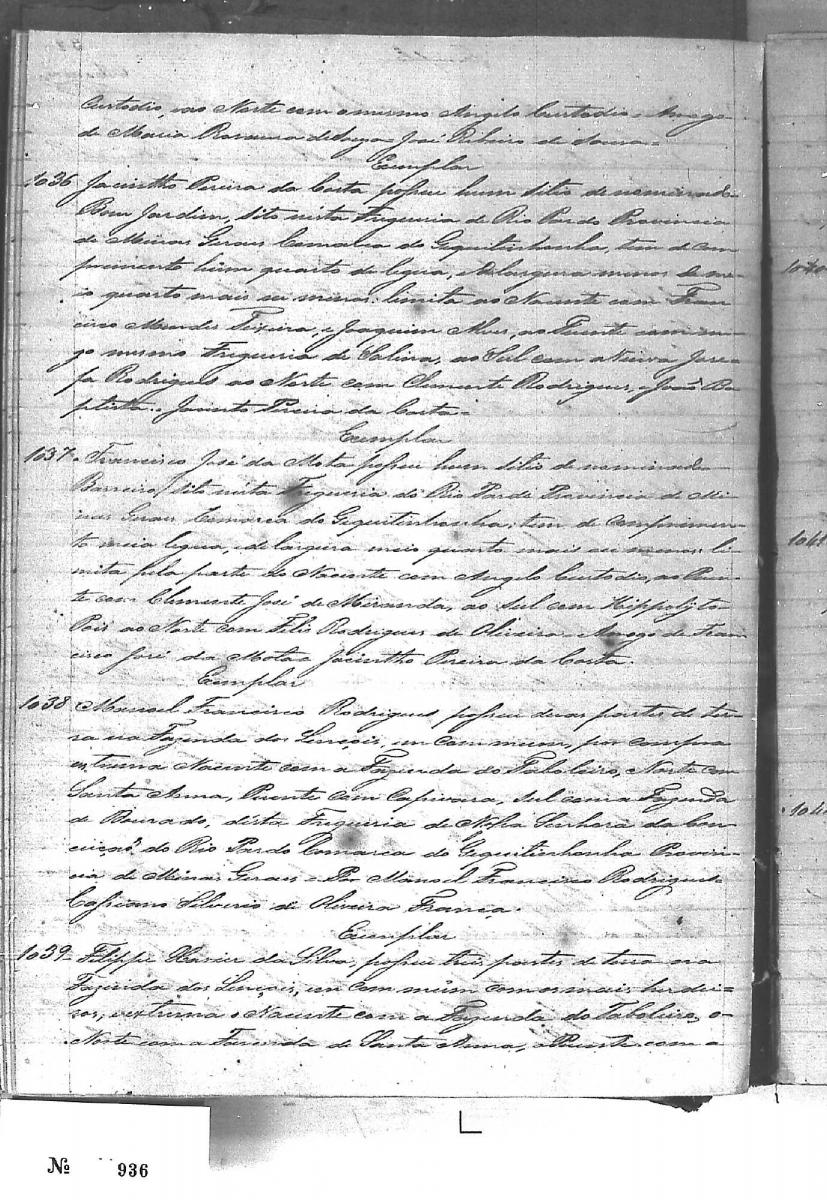 Custodio, ao Norte com o mesmo Angelo Custodio. Arogo
de Maria Romana de Jose Ribeiro de Sousa.
Exemplar
1036 Jacintho Pereira da Costa possue hum sitio denominado
Bom Jardim, sito nesta Freguesia do Rio Pardo Provincia
de Minas Geraes Comarca do Gequitinhonha, tem de com
primento hum quarto de legua, e de largura menos de me
io quarto mais ou menos: limita ao Nacente com Fran
cisco Mendes Teixeira, e Joaquim Alves, ao Puente com
mesmo Freguesia de Salina, ao Sul com a Viuva Jose
fa Rodrigues ao Norte com Clemente Rodrigues, e João Ba
ptista. Jacinto Pereira da Costa.
Exemplar
1037 Francisco José da Mota possue hum sitio denominado
Barreiro, sito nesta Freguesia do Rio Pardo Provincia de Mi
nas Geraes Comarca do Gequitinhonha: tem de comprimen
to meia legua, e de largura meio quarto mais ou menos li
mita pela parte do Nacente com Angelo Custodio, ao Puen
te com Clemente José de Miranda, ao Sul com Hippolyto
Pois ao Norte com Felis Rodrigues de Oliveira. Arogo de Fran
cisco José da Mota Jacintho Pereira da Costa.
Exemplar
1038 Manoel Francisco Rodrigues, possue duas partes de ter
ra na Fazenda dos Lençois, em commum, por compra
extrema Nacente com a Fazenda do Taboleiro, Norte com
Santa Anna, Puente com Capivara, Sul com a Fazenda
do desta Freguesia de Nossa Senhora da Con
ceição do Rio Pardo Comarca do Gequitinhonha Provin
cia de Minas Geraes. Por Manoel Francisco Rodrigues
Cassiano Silverio de Oliveira Franca.
Exemplar
1039 Filippe Xavier da Silva, possue tres partes de terra na
Fazenda dos Lençois, em commum com os mais herdei
ros, extrema o Nacente com a Fazenda do Taboleiro, o
Norte com a Fazenda de Santa Anna, o Puente com a
1041
Nº 936